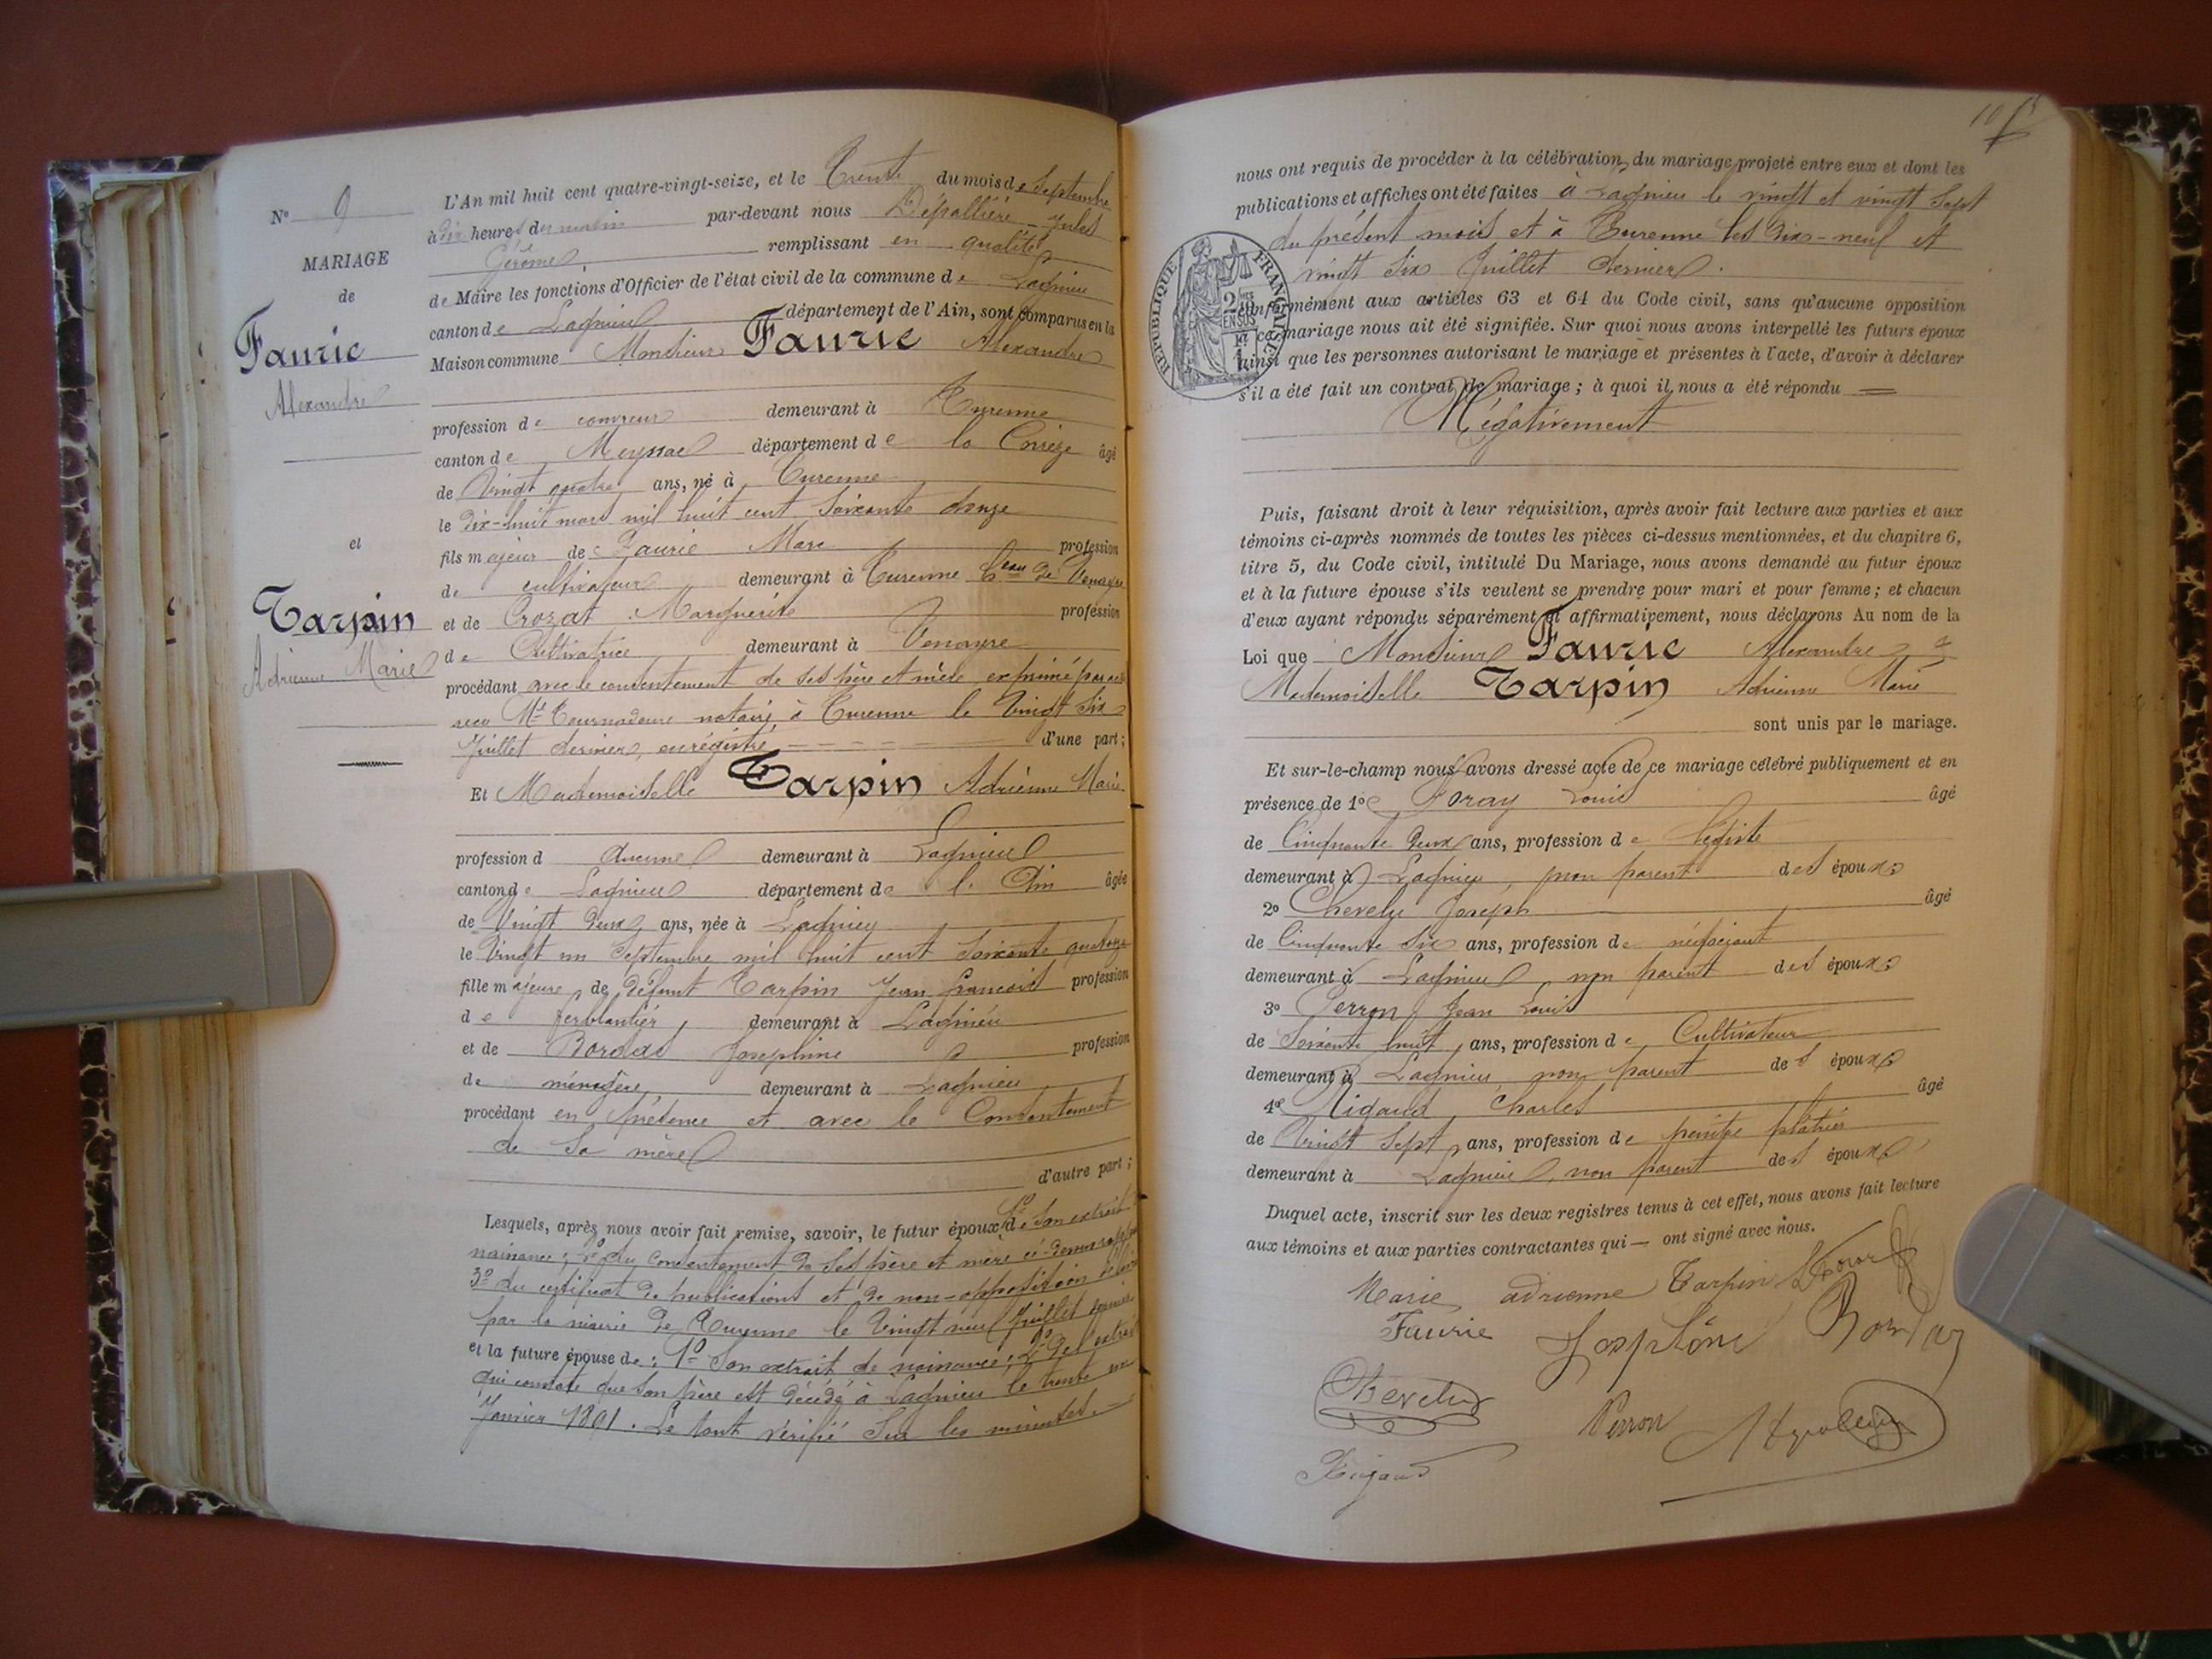 N° 9
MARIAGE
de
Faurie
Alexandre
et
Tarpin
Adrienne Marie
L'An mil huit cent quatre-vingt-seize, et le Trente du mois de Septembre
à dix heures du matin par-devant nous Dépallière Jules
Gérôme remplissant en qualité
de Maire les fonctions d'Officier de l'état civil de la commune de Lagnieu
canton de Lagnieu département de l'Ain, sont comparus en la
Maison commune Monsieur Faurie Alexandre
profession de couvreur demeurant à Turenne
canton de Meyssac département de la Corrèze âgé
de Vingt quatre ans, né à Turenne
le dix-huit mars mil huit cent soixante douze
fils majeur de Faurie Marc profession
de cultivateur demeurant à Turenne heau de Venayre
et de Crozat Marguerite profession
de Cultivatrice demeurant à Venayre
procédant avec le consentement de ses père et mère exprimé par acte
reçu Me Tournadour notaire à Turenne le Vingt six
Juillet dernier, enregistré d'une part;
Et Mademoiselle Tarpin Adrienne Marie
profession d aucune demeurant à Lagnieu
canton de Lagnieu département de l'Ain âgée
de Vingt deux ans, née à Lagnieu
le Vingt un Septembre mil huit cent soixante quatorze
fille majeure de défunt Tarpin Jean françois profession
de ferblantier, demeurant à Lagnieu
et de Bordas Josephine profession
de ménagère demeurant à Lagnieu
procédant en présence et avec le Consentement
de sa mère
d'autre part;
Lesquels, après nous avoir fait remise, savoir, le futur époux 1° de son extrait de
naissance; 2° du consentement de ses père et mère ci-dessus
3° du certificat de publications et de non-opposition délivré
par la mairie de Turenne le Vingt neuf Juillet dernier
et la future épouse de: 1° Son extrait de naissance; 2° de l'extrait
qui constate que son père est décédé à Lagnieu le trente un
Janvier 1891. Le tout vérifié sur les minutes.
nous ont requis de procéder à la célébration du mariage projeté entre eux et dont les
publications et affiches ont été faites à Lagnieu le vingt et vingt sept
du présent mois et à Turenne les dix-neuf et
vingt six Juillet dernier.
RÉPUBLIQUE FRANÇAISE
conformément aux articles 63 et 64 du Code civil, sans qu'aucune opposition
à ce mariage nous ait été signifiée. Sur quoi nous avons interpellé les futurs époux
ainsi que les personnes autorisant le mariage et présentes à l'acte, d'avoir à déclarer
s'il a été fait un contrat de mariage; à quoi il nous a été répondu
Négativement
Puis, faisant droit à leur réquisition, après avoir fait lecture aux parties et aux
témoins ci-après nommés de toutes les pièces ci-dessus mentionnées, et du chapitre 6,
titre 5, du Code civil, intitulé Du Mariage, nous avons demandé au futur époux
et à la future épouse s'ils veulent se prendre pour mari et pour femme; et chacun
d'eux ayant répondu séparément et affirmativement, nous déclarons Au nom de la
Loi que Monsieur Faurie Alexandre &
Mademoiselle Tarpin Adrienne Marie
sont unis par le mariage.
Et sur-le-champ nous avons dressé acte de ce mariage célébré publiquement et en
présence de 1° Foray Louis âgé
de Cinquante deux ans, profession de légiste
demeurant à Lagnieu, non parent des époux
2° Chevely Joseph âgé
de Cinquante six ans, profession de négociant
demeurant à Lagnieu non parent des époux
3° Perron Jean Louis
de Soixante huit ans, profession de Cultivateur
demeurant à Lagnieu, non parent des époux
4° Rigaud Charles âgé
de Vingt sept ans, profession de peintre plâtrier
demeurant à Lagnieu, non parent des époux
Duquel acte, inscrit sur les deux registres tenus à cet effet, nous avons fait lecture
aux témoins et aux parties contractantes qui — ont signé avec nous.
Marie adrienne Tarpin
Faurie Josephine Bordas
Chevely Perron
Rigaud